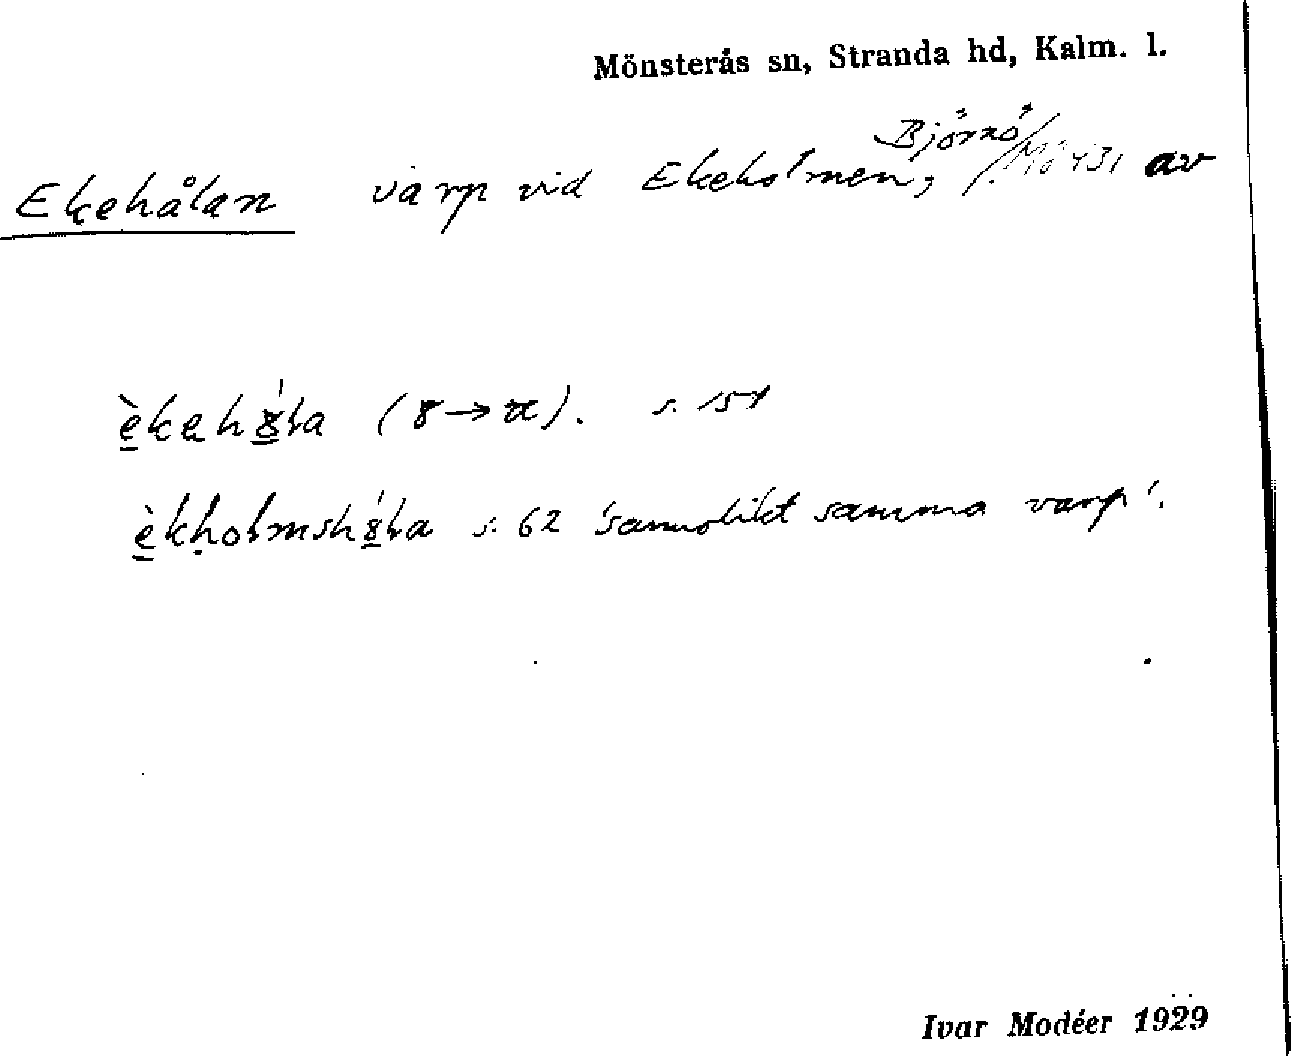 Mönsterås sn, Stranda hd, Kalm. l.
Björnö
Ekehålan varp vid Ekeholmen, av
èkehȣ́ƚa (ȣ→α). s. 154
èkholmshȣ́ƚa s. 62 'sannolikt samma varp'.
Ivar Modéer 1929